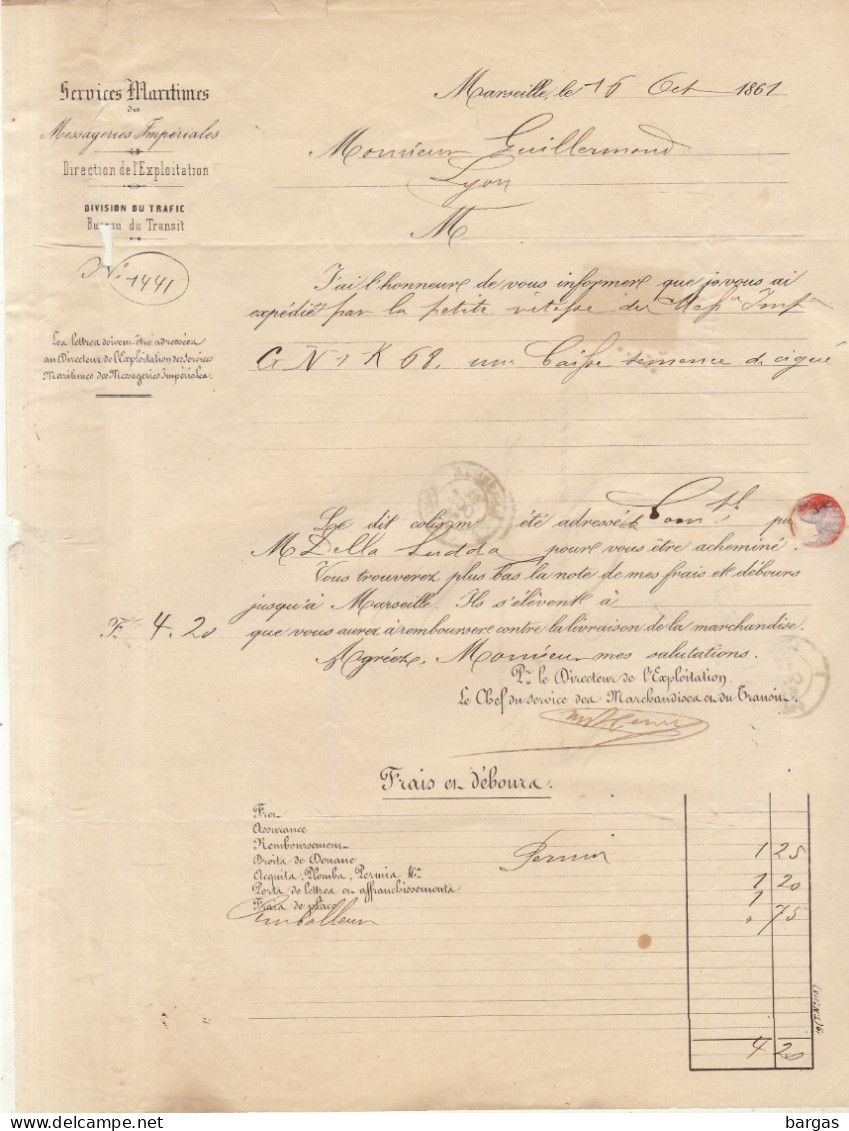 Services Maritimes
des
Messageries Impériales
Direction de l'Exploitation
DIVISION DU TRAFIC
Bureau du Transit
N.º 1441
Les lettres doivent être adressées
au Directeur de l'Exploitation des Services
Maritimes des Messageries Impériales.
Marseille, le 16 Oct 1861
Monsieur Guillermond
Lyon
M
J'ai l'honneur de vous informer que je vous ai
expédié par la petite vitesse des Mess Imp
G N 1 K 68. une Caisse semence d. ciguë
Le dit colis m' été adressé
M Della Sudda pour vous être acheminé.
Vous trouverez plus bas la note de mes frais et débours
jusqu'à Marseille. Ils s'élèvent à
F. 4.20 que vous aurez à rembourser contre la livraison de la marchandise.
Agréez, Monsieur mes salutations.
Pr. le Directeur de l'Exploitation.
Le Chef du service des Marchandises et du Transit.
Frais et débours.
Fret
Assurance
Remboursement
Droits de Douane Permis 1 25
Acquits, Plombs, Permis &c.
Ports de lettres et affranchissements 1 20
Frais de place 1
Emballeur " 75
4 20
bargas